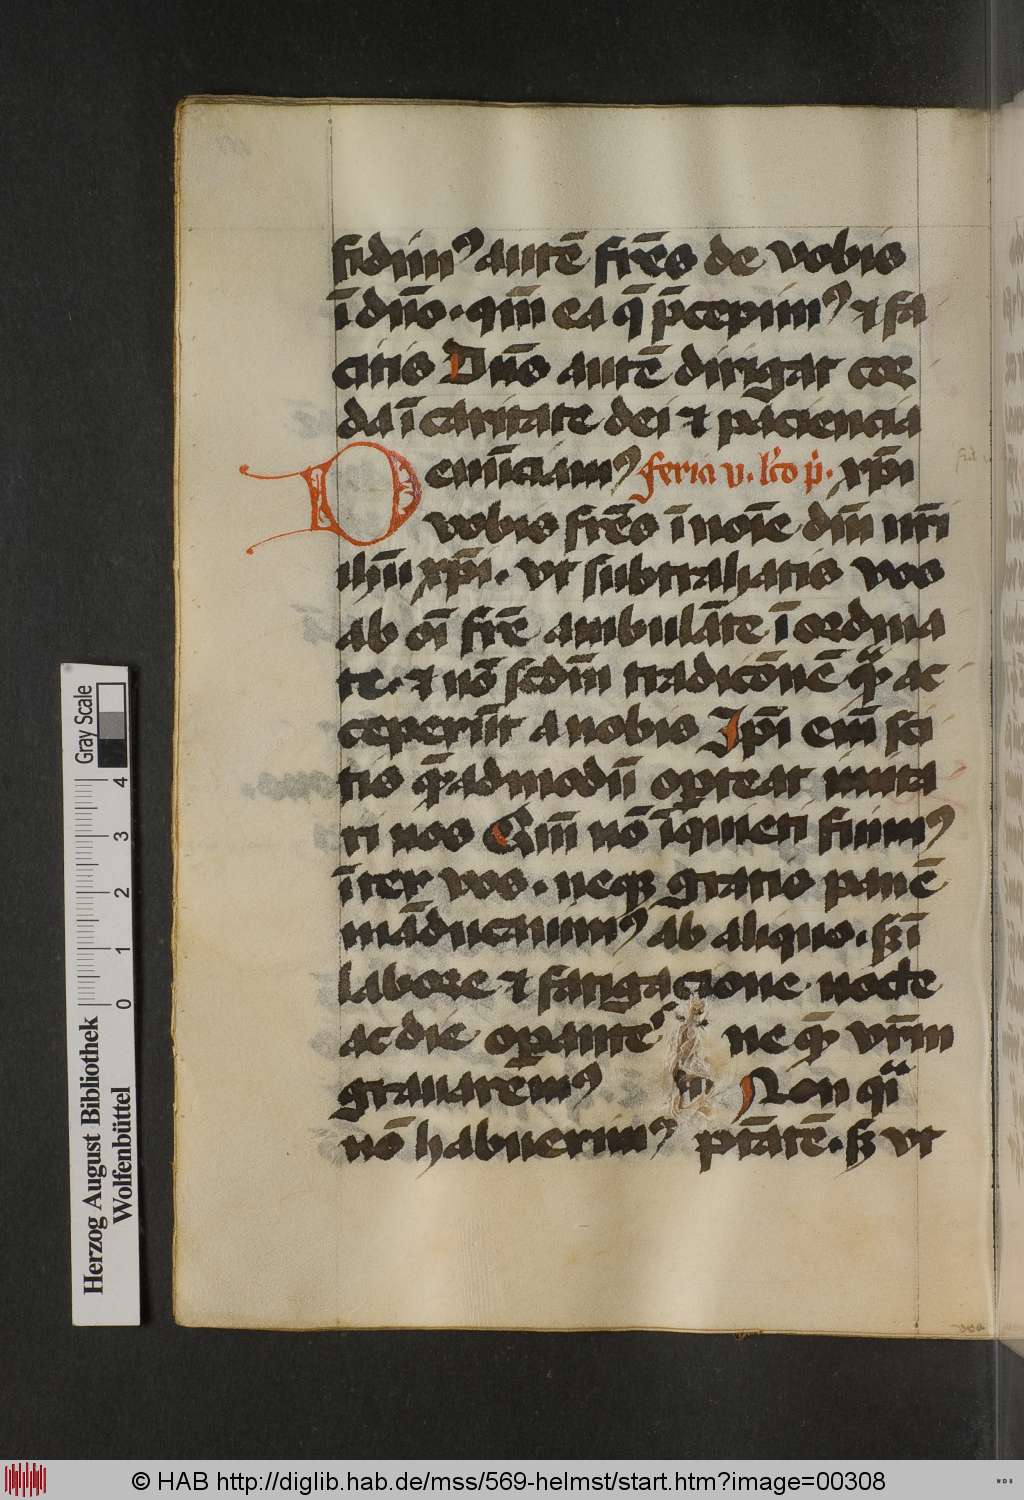 fidim⁹ autē fr̄es de vobis
ī dn̄o · qm̄ ea q̄ p̄cepim⁹ ⁊ fa
citis Dn̄s autē dirigat cor
da ī caritate dei ⁊ paciencia
Denūciam⁹ feria v. lc̄o p̄. xp̄i
vobis fr̄es ī noīe dn̄i nr̄i
ihū xp̄i · vt subtrahatis vos
ab oī fr̄e ambulāte ī ordina
te · ⁊ nō scdm̄ tradicōnē q̄ ac
ceperūt a nobis Ip̄i em̄ sci
tis q̄admodū oporteat imita
ri nos Qm̄ nō īquieti fuim⁹
īter vos · neqꝫ gratis panē
māducauim⁹ ab aliquo · sꝫ ī
labore ⁊ fatigacione nocte
ac die opantes ne q̄ vr̄m
grauarem⁹ Non qᵃ
nō habuerim⁹ ptātē · sꝫ vt
Gray Scale
4
3
2
1
0
Herzog August Bibliothek
Wolfenbüttel
© HAB http://diglib.hab.de/mss/569-helmst/start.htm?image=00308